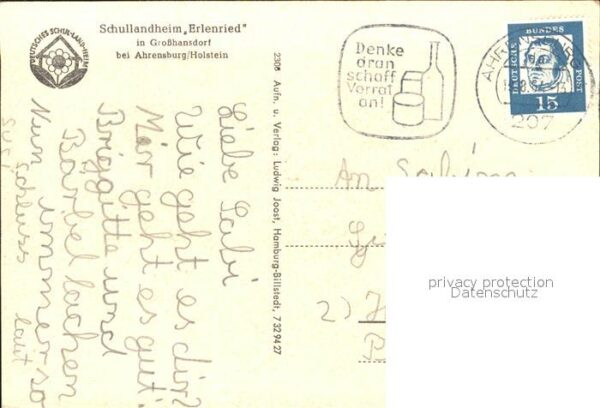 Schullandheim „Erlenried"
in Großhansdorf
bei Ahrensburg/Holstein
DEUTSCHES SCHUL-LAND-HEIM
Denke
dran
schaff
Vorrat
an!
DEUTSCHE BUNDESPOST
15
207
2308 Aufn. u. Verlag: Ludwig Joost, Hamburg-Billstedt, 7 32 94 27
Liebe Sabi
Wie geht es dir?
Mir geht es gut.
Brigitte und
Bärbel lachen
immer so
laut
Nun Schluss
An
2)
privacy protection
Datenschutz